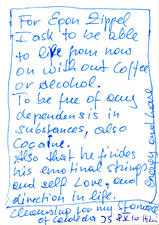 For Egon Zippel
I ask to be able
to life from now
on without Coffee
or alcohol.
To be free of any
dependensis in
substances, also
Cocaine.
Also that he findes
his emotional strings
and self Love, and
direction in life.
Cleansing for my Stomach
of candida
energy and heart